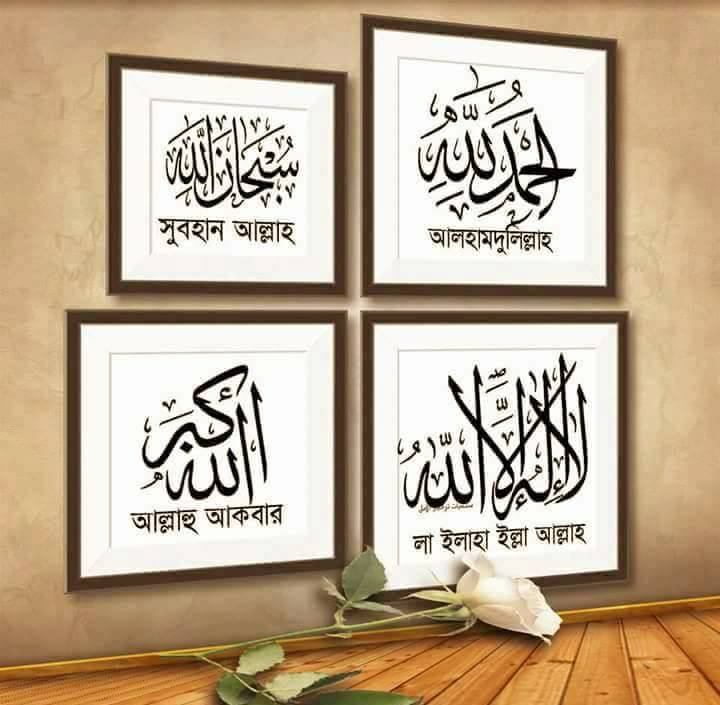 سُبْحَانَ اللَّه
সুবহান আল্লাহ
الحَمْدُ لِلَّهِ
আলহামদুলিল্লাহ
اللّٰه أكبر
আল্লাহু আকবার
لا إله إلا اللّٰه
লা ইলাহা ইল্লা আল্লাহ